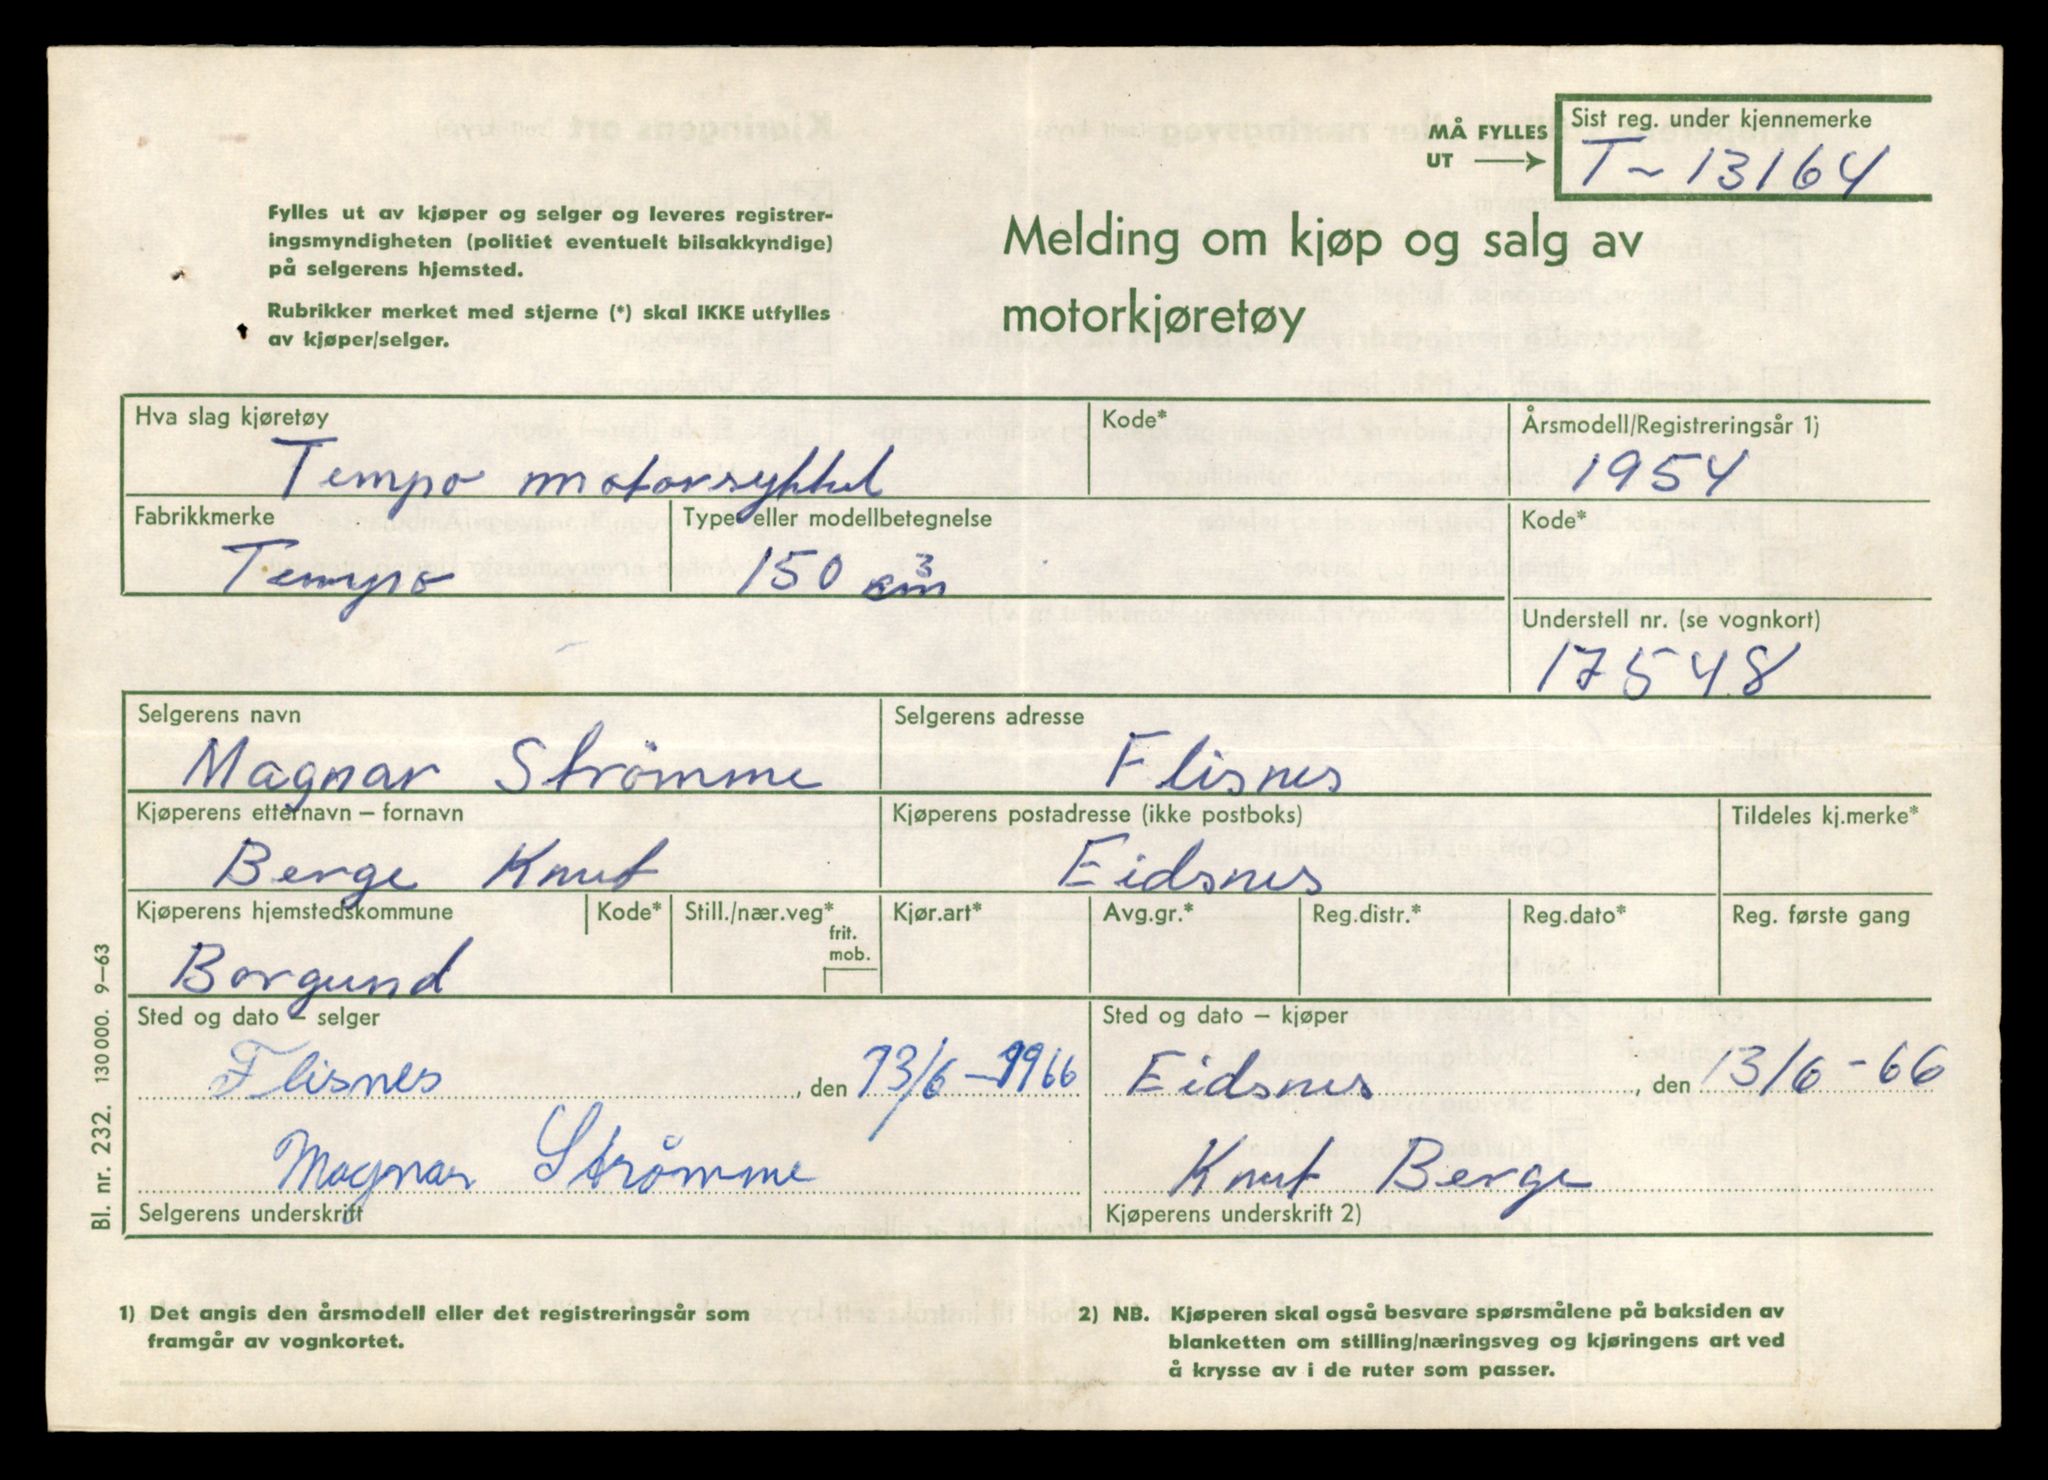 MÅ FYLLES
UT
Sist reg. under kjennemerke
T - 13164
Fylles ut av kjøper og selger og leveres registrer-
ingsmyndigheten (politiet eventuelt bilsakkyndige)
på selgerens hjemsted.
Rubrikker merket med stjerne (*) skal IKKE utfylles
av kjøper/selger.
Melding om kjøp og salg av
motorkjøretøy
Hva slag kjøretøy
Tempo motorsykkel
Kode*
Årsmodell/Registreringsår 1)
1954
Fabrikkmerke
Tempo
Type eller modellbetegnelse
150 cm3
Kode*
Understell nr. (se vognkort)
17548
Selgerens navn
Magnar Strömme
Selgerens adresse
Flisnes
Kjøperens etternavn – fornavn
Berge Knut
Kjøperens postadresse (ikke postboks)
Eidsnes
Tildeles kj.merke*
Kjøperens hjemstedskommune
Borgund
Kode*
Still./nær.veg*
frit.
mob.
Kjør.art*
Avg.gr.*
Reg.distr.*
Reg.dato*
Reg. første gang
Sted og dato – selger
Flisnes, den 13/6-1966
Magnar Strømme
Selgerens underskrift
Sted og dato – kjøper
Eidsnes, den 13/6-66
Knut Berge
Kjøperens underskrift 2)
Bl. nr. 232. 130 000. 9–63
1) Det angis den årsmodell eller det registreringsår som
framgår av vognkortet.
2) NB. Kjøperen skal også besvare spørsmålene på baksiden av
blanketten om stilling/næringsveg og kjøringens art ved
å krysse av i de ruter som passer.